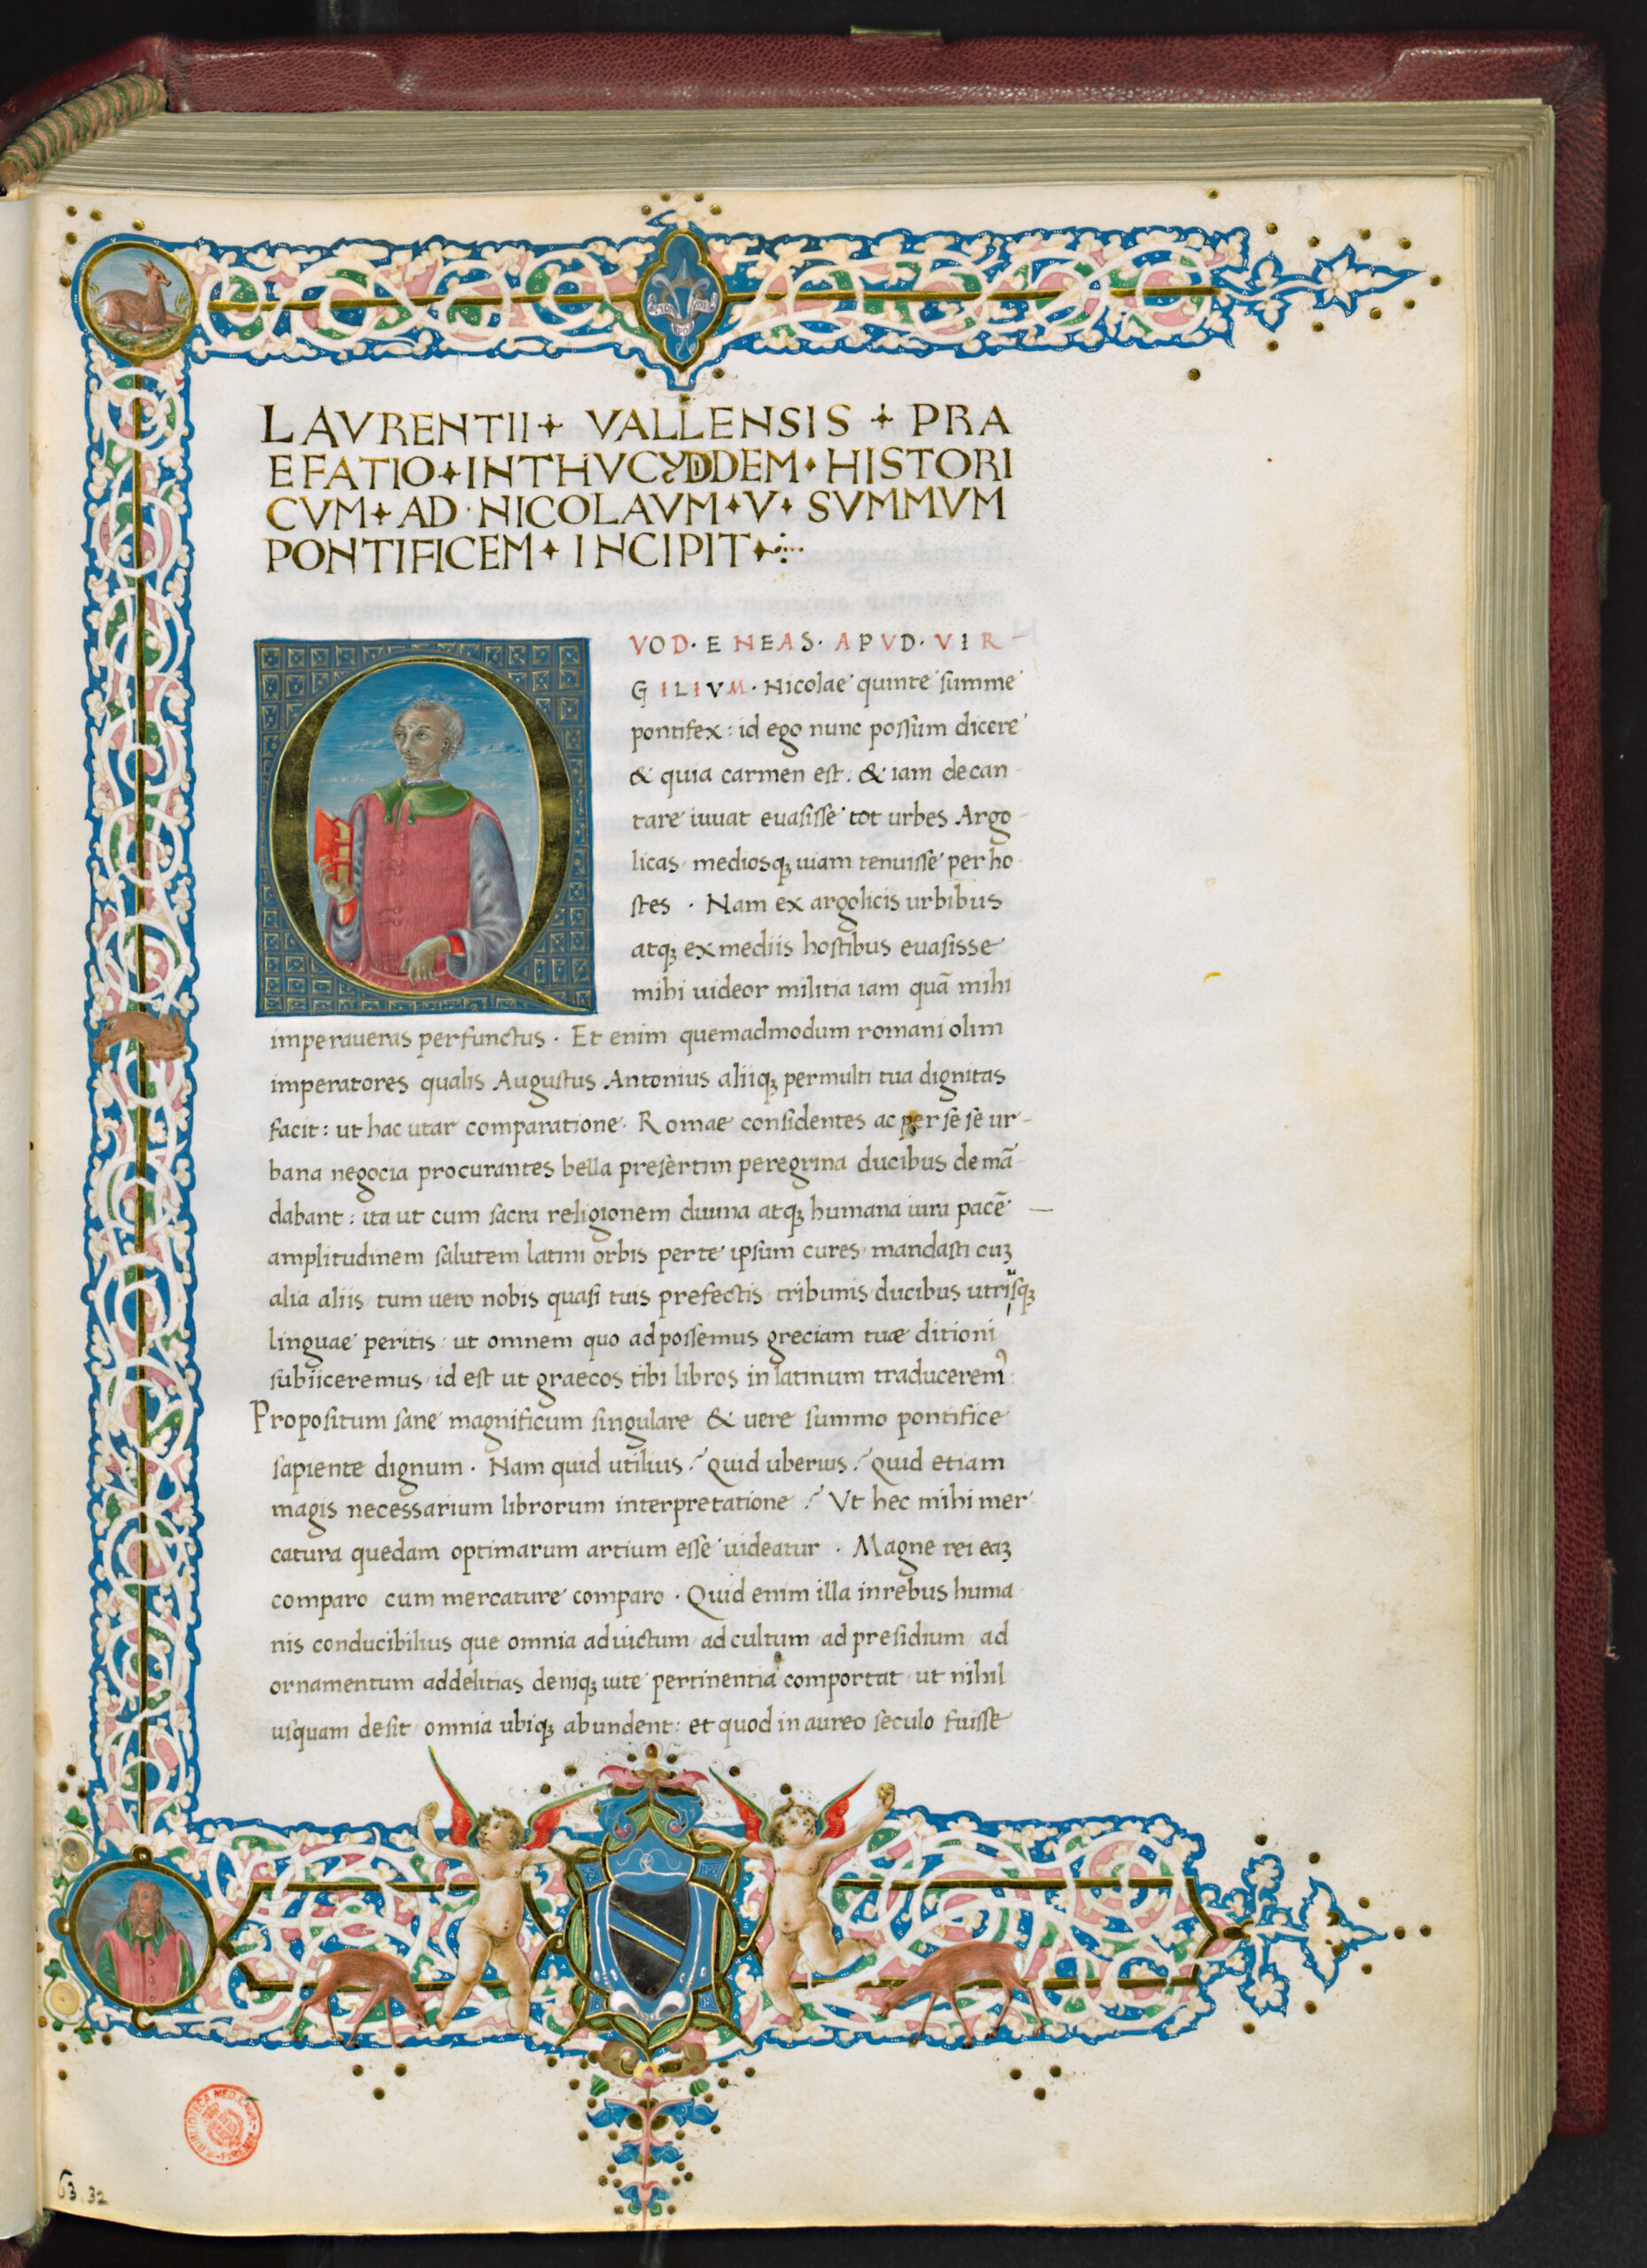 LAVRENTII + VALLENSIS + PRA
EFATIO + INTHVCYDDEM · HISTORI
CVM + AD · NICOLAVM + V + SVMMVM
PONTIFICEM + INCIPIT +
VOD · ENEAS · APVD · VIR
GILIVM · Nicolae quinte summe
pontifex : id ego nunc possum dicere
& quia carmen est . & iam decan
tare iuuat euasisse tot urbes Argo
licas mediosqꝫ uiam tenuisse per ho
stes · Nam ex argolicis urbibus
atqꝫ ex mediis hostibus euasisse
mihi uideor militia iam quã mihi
imperaueras perfunctus · Et enim quemadmodum romani olim
imperatores qualis Augustus Antonius aliiqꝫ permulti tua dignitas
facit : ut hac utar comparatione · Romae considentes ac per se se ur-
bana negocia procurantes bella presertim peregrina ducibus demã
dabant : ita ut cum sacra religionem diuina atqꝫ humana iura pacẽ
amplitudinem salutem latini orbis per te ipsum cures mandasti cuꝫ
alia aliis tum uero nobis quasi tuis prefectis tribunis ducibus utrisqꝫ
linguae peritis ut omnem quo ad possemus greciam tuæ ditioni
subiiceremus id est ut graecos tibi libros in latinum traduceremꝰ :
Propositum sane magnificum singulare & uere summo pontifice
sapiente dignum · Nam quid utilius ? quid uberius ? quid etiam
magis necessarium librorum interpretatione ? Vt hec mihi mer
catura quedam optimarum artium esse uideatur · Magne rei eaꝫ
comparo cum mercature comparo · Quid enim illa in rebus huma
nis conducibilius que omnia ad uictum ad cultum ad presidium ad
ornamentum ad delitias deniqꝫ uite pertinentia comportat ut nihil
usquam desit omnia ubiqꝫ abundent : et quod in aureo seculo fuisse
63.32